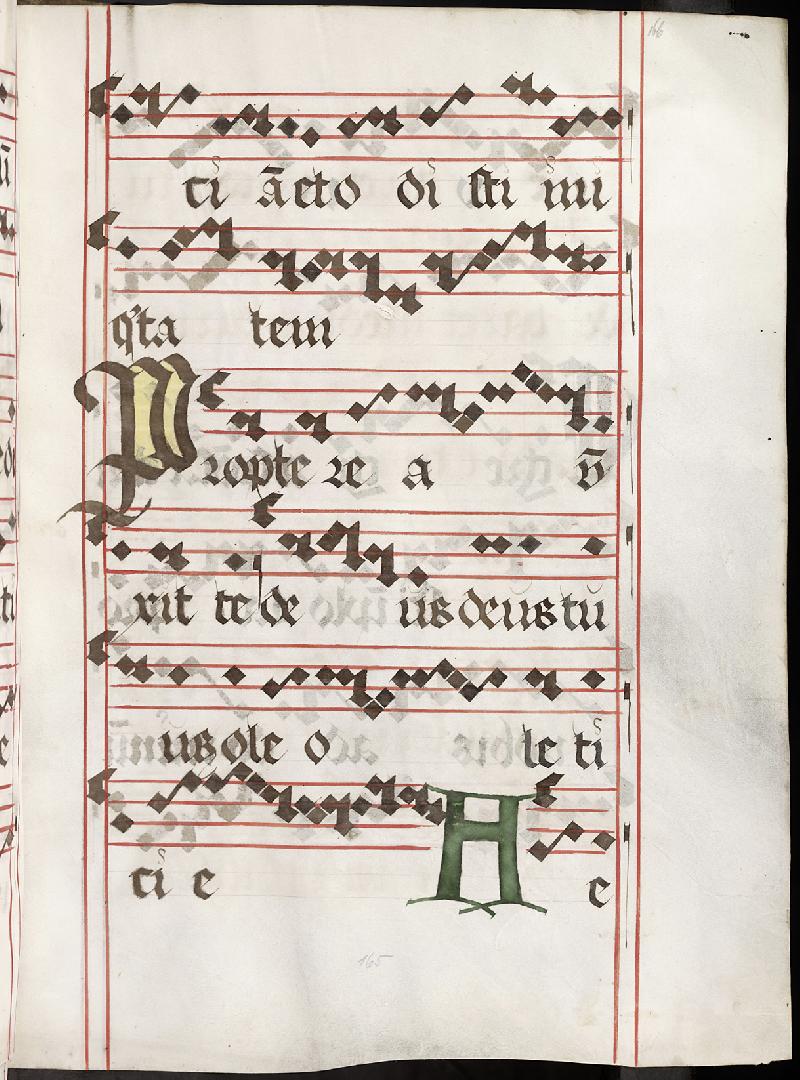 166
ti ā et o di sti ini
q'ta tem
Propte re a ū
xit te de us deus tu
us ole o le ti
ti e A e
165